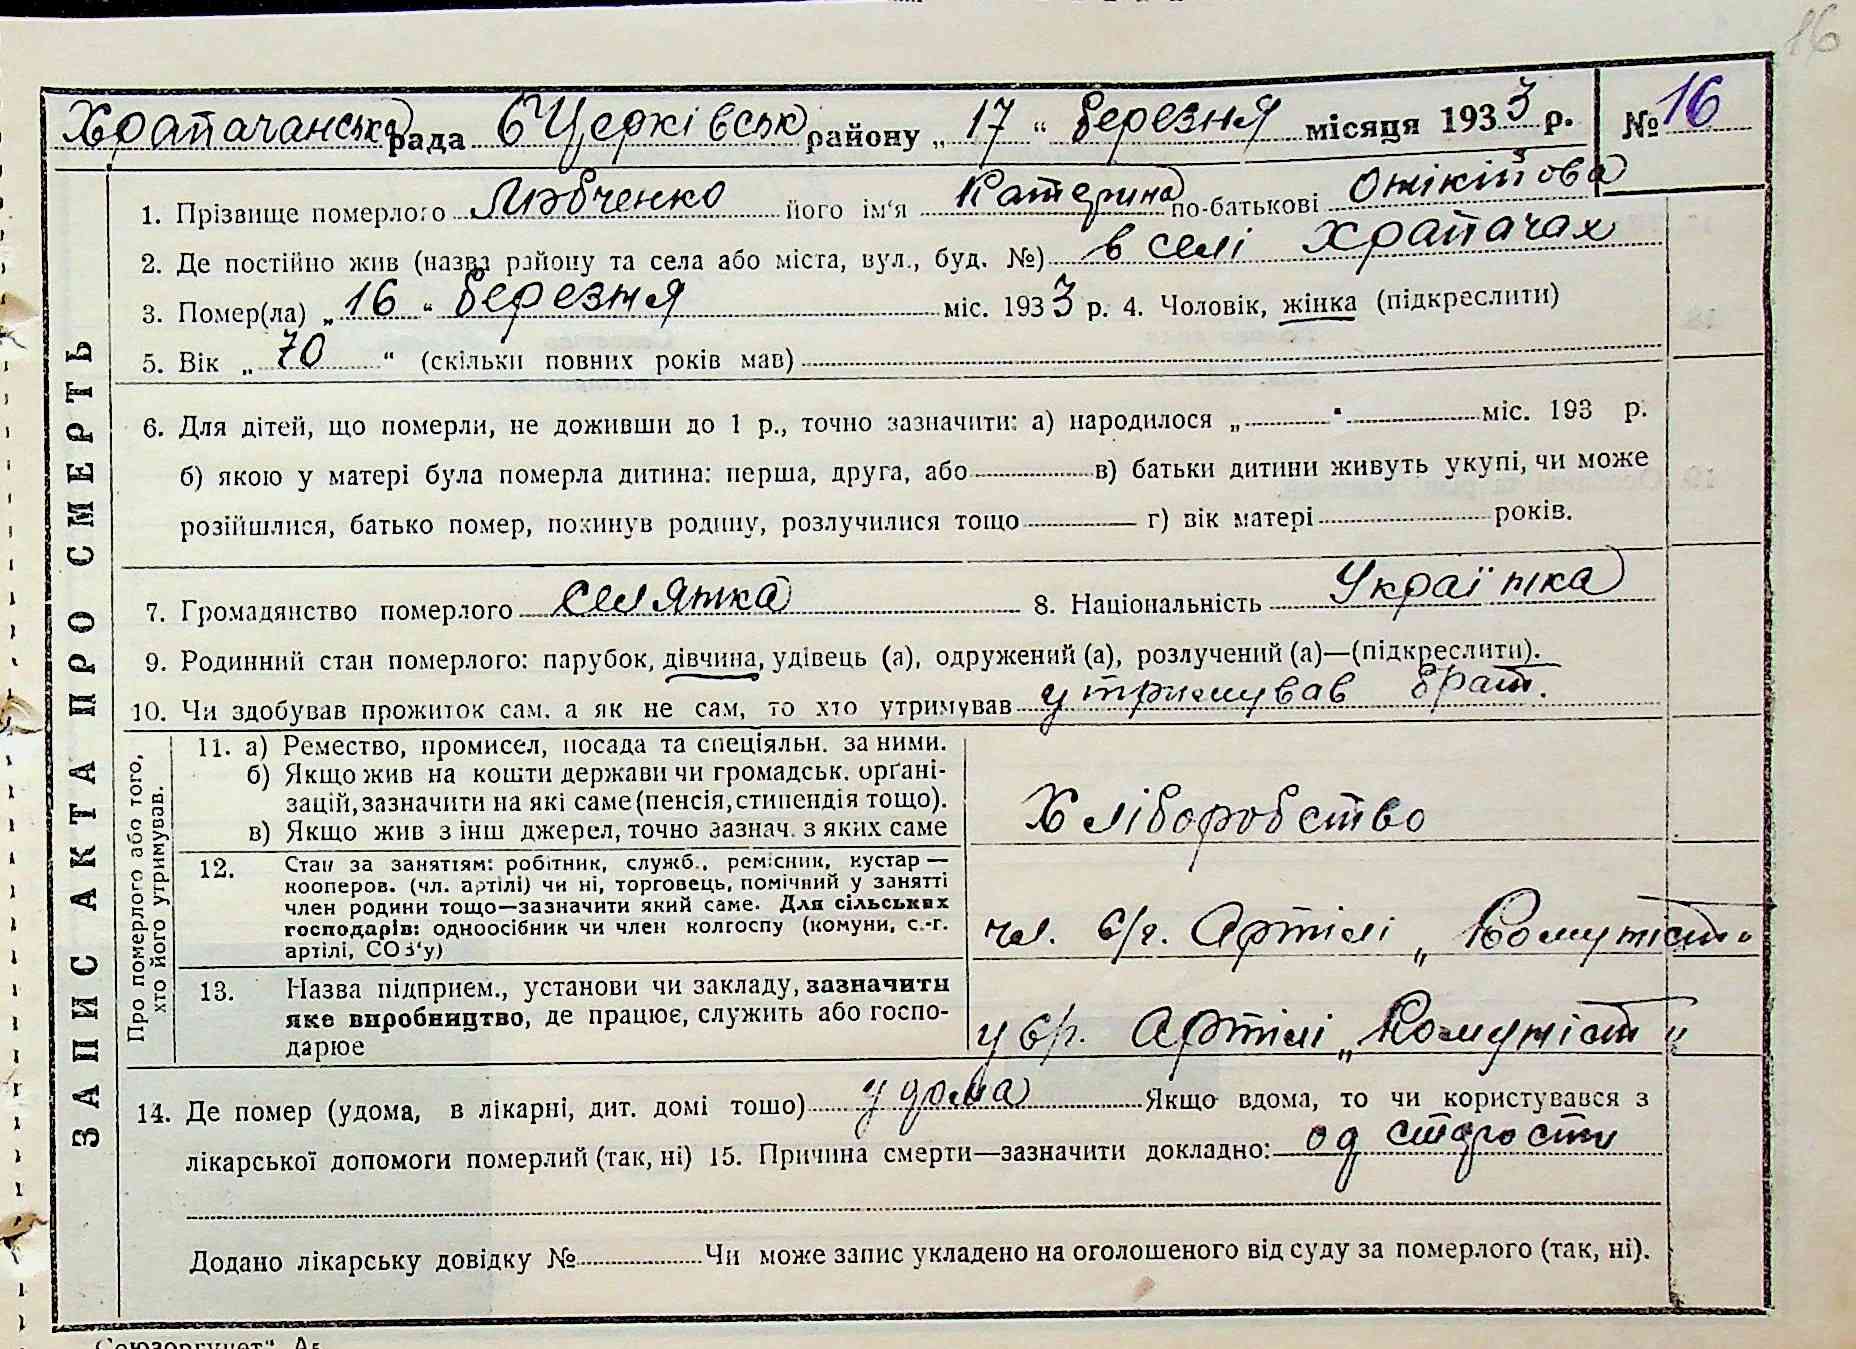 16
Храпачанська рада бЦерківськ району „ 17 “ березня місяця 1933 р. № 16
1. Прізвище померлого Любченко його ім‘я Катерина по-батькові
2. Де постійно жив (назва району та села або міста, вул., буд. №) в селі Храпачах
3. Помер(ла) „ 16 “ березня міс. 1933 р. 4. Чоловік, жінка (підкреслити)
5. Вік „ 70 “ (скільки повних років мав)
6. Для дітей, що померли, не доживши до 1 р., точно зазначити: а) народилося „ “ міс. 193 р.
б) якою у матері була померла дитина: перша, друга, або в) батьки дитини живуть укупі, чи може
розійшлися, батько помер, покинув родину, розлучилися тощо г) вік матері років.
7. Громадянство померлого селянка 8. Національність Українка
9. Родинний стан померлого: парубок, дівчина, удівець (а), одружений (а), розлучений (а)—(підкреслити).
10. Чи здобував прожиток сам. а як не сам, то хто утримував утримував брат.
ЗАПИС АКТА ПРО СМЕРТЬ
Про померлого або того,
хто його утримував.
11. а) Ремество, промисел, посада та спеціяльн. за ними.
б) Якщо жив на кошти держави чи громадськ. органі-
зацій, зазначити на які саме (пенсія, стипендія тощо).
в) Якщо жив з інш джерел, точно зазнач. з яких саме
Хліборобство
12. Стан за занятіям: робітник, служб., ремісник, кустар —
кооперов. (чл. артілі) чи ні, торговець, помічний у занятті
член родини тощо—зазначити який саме. Для сільських
господарів: одноосібник чи член колгоспу (комуни, с.-г.
артілі, СОЗ‘у)
чл. с/г. Артілі „Комуніст“
13. Назва підприєм., установи чи закладу, зазначити
яке виробництво, де працює, служить або госпо-
дарює
у с/г. Артілі „Комуніст“
14. Де помер (удома, в лікарні, дит. домі тощо) удома Якщо вдома, то чи користувався з
лікарської допомоги померлий (так, ні) 15. Причина смерти—зазначити докладно: од старости
Додано лікарську довідку № Чи може запис укладено на оголошеного від суду за померлого (так, ні).